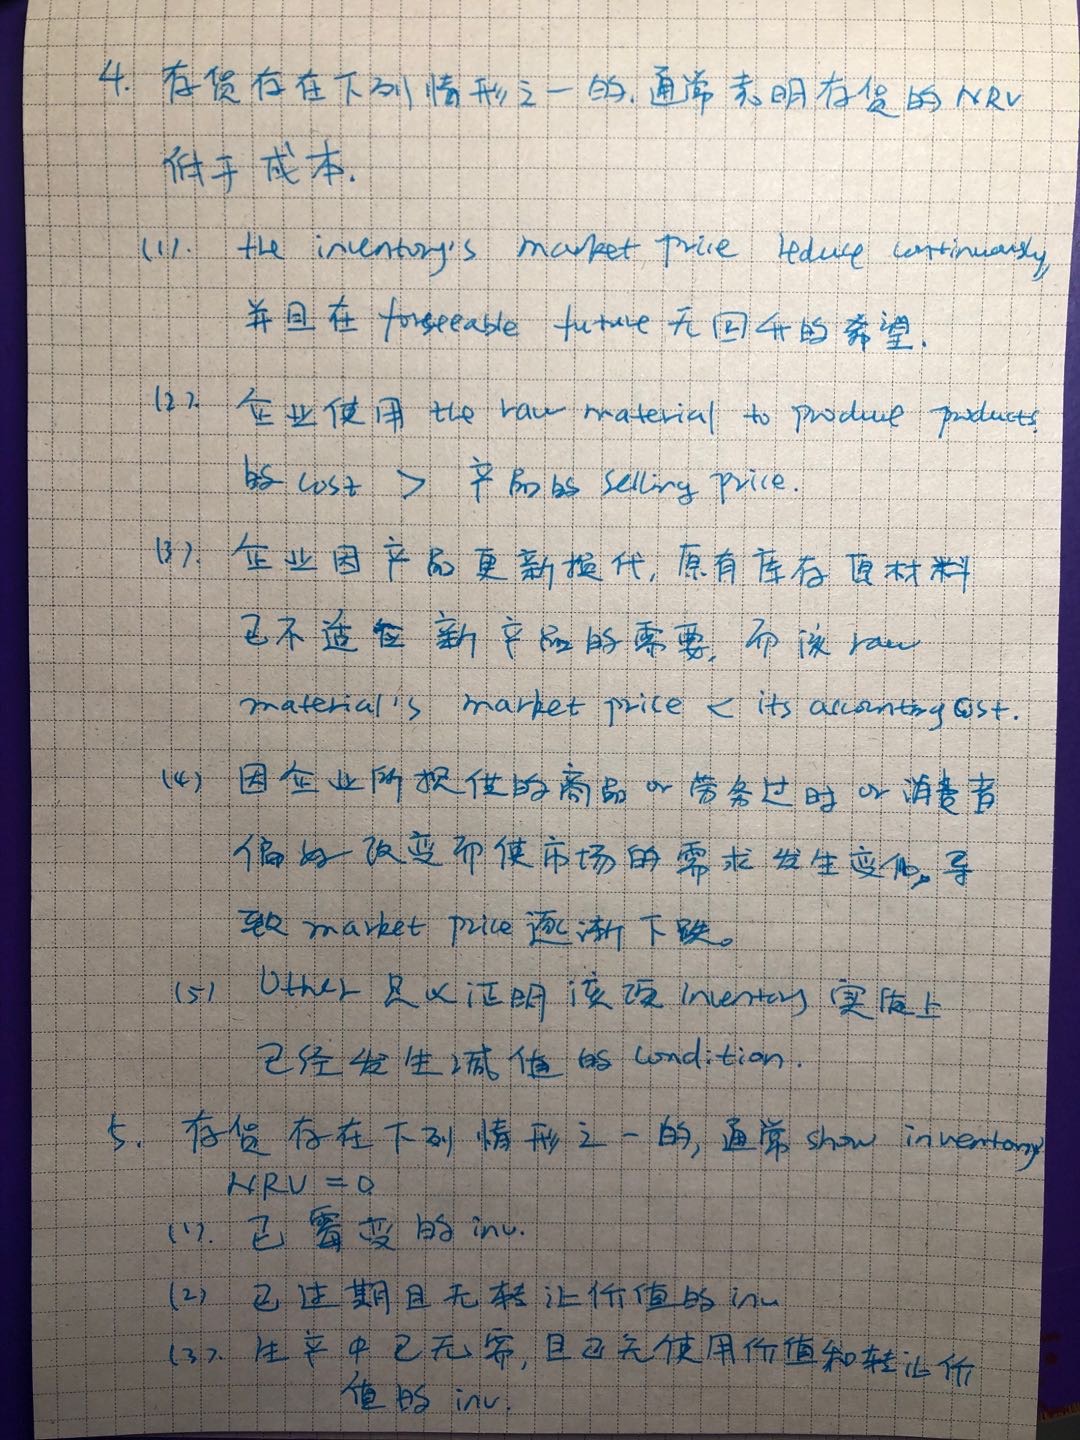 4. 存货存在下列情形之一的,通常表明存货的NRV
低于成本.
(1). the inventory's market price reduce continuously,
并且在 forseeable future 无回升的希望.
(2). 企业使用 the raw material to produce products
的 cost > 产品的 selling price.
(3). 企业因产品更新换代,原有库存原材料
已不适应新产品的需要,而该 raw
material's market price < its accounting cost.
(4) 因企业所提供的商品 or 劳务过时 or 消费者
偏好改变而使市场的需求发生变化,导
致 market price 逐渐下跌。
(5) Other 足以证明该项 inventory 实质上
已经发生减值的 condition.
5. 存货存在下列情形之一的,通常 show inventory
NRV = 0
(1). 已霉变的 inv.
(2) 已过期且无转让价值的 inv
(3). 生产中已无需,且已无使用价值和转让价
值的 inv.